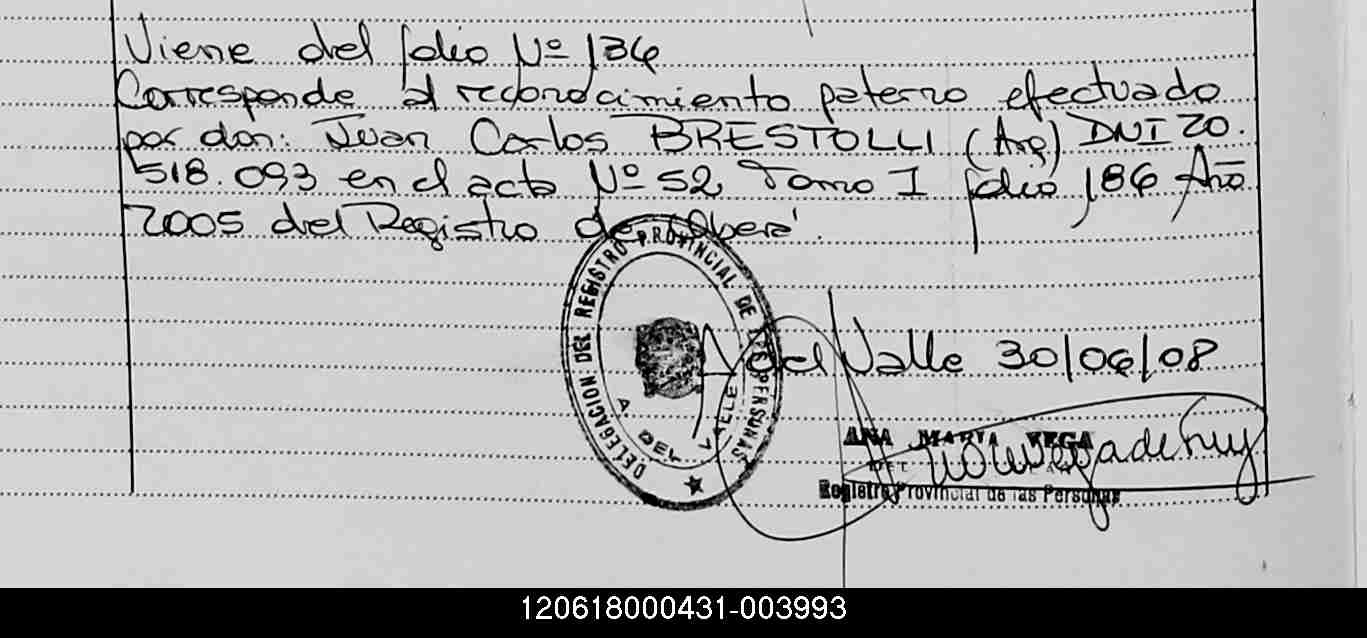 Viene del folio Nº 136
Corresponde al reconocimiento paterno efectuado
por don: Juan Carlos BRESTOLLI (Arg) DNI 20.
518.093 en el acta Nº 52 Tomo I folio 186 Año
2005 del Registro de Oberá.
DELEGACION DEL REGISTRO PROVINCIAL DE LAS PERSONAS
A. DEL VALLE
A del Valle 30/06/08
ANA MARIA VEGA
Registro Provincial de las Personas
120618000431-003993